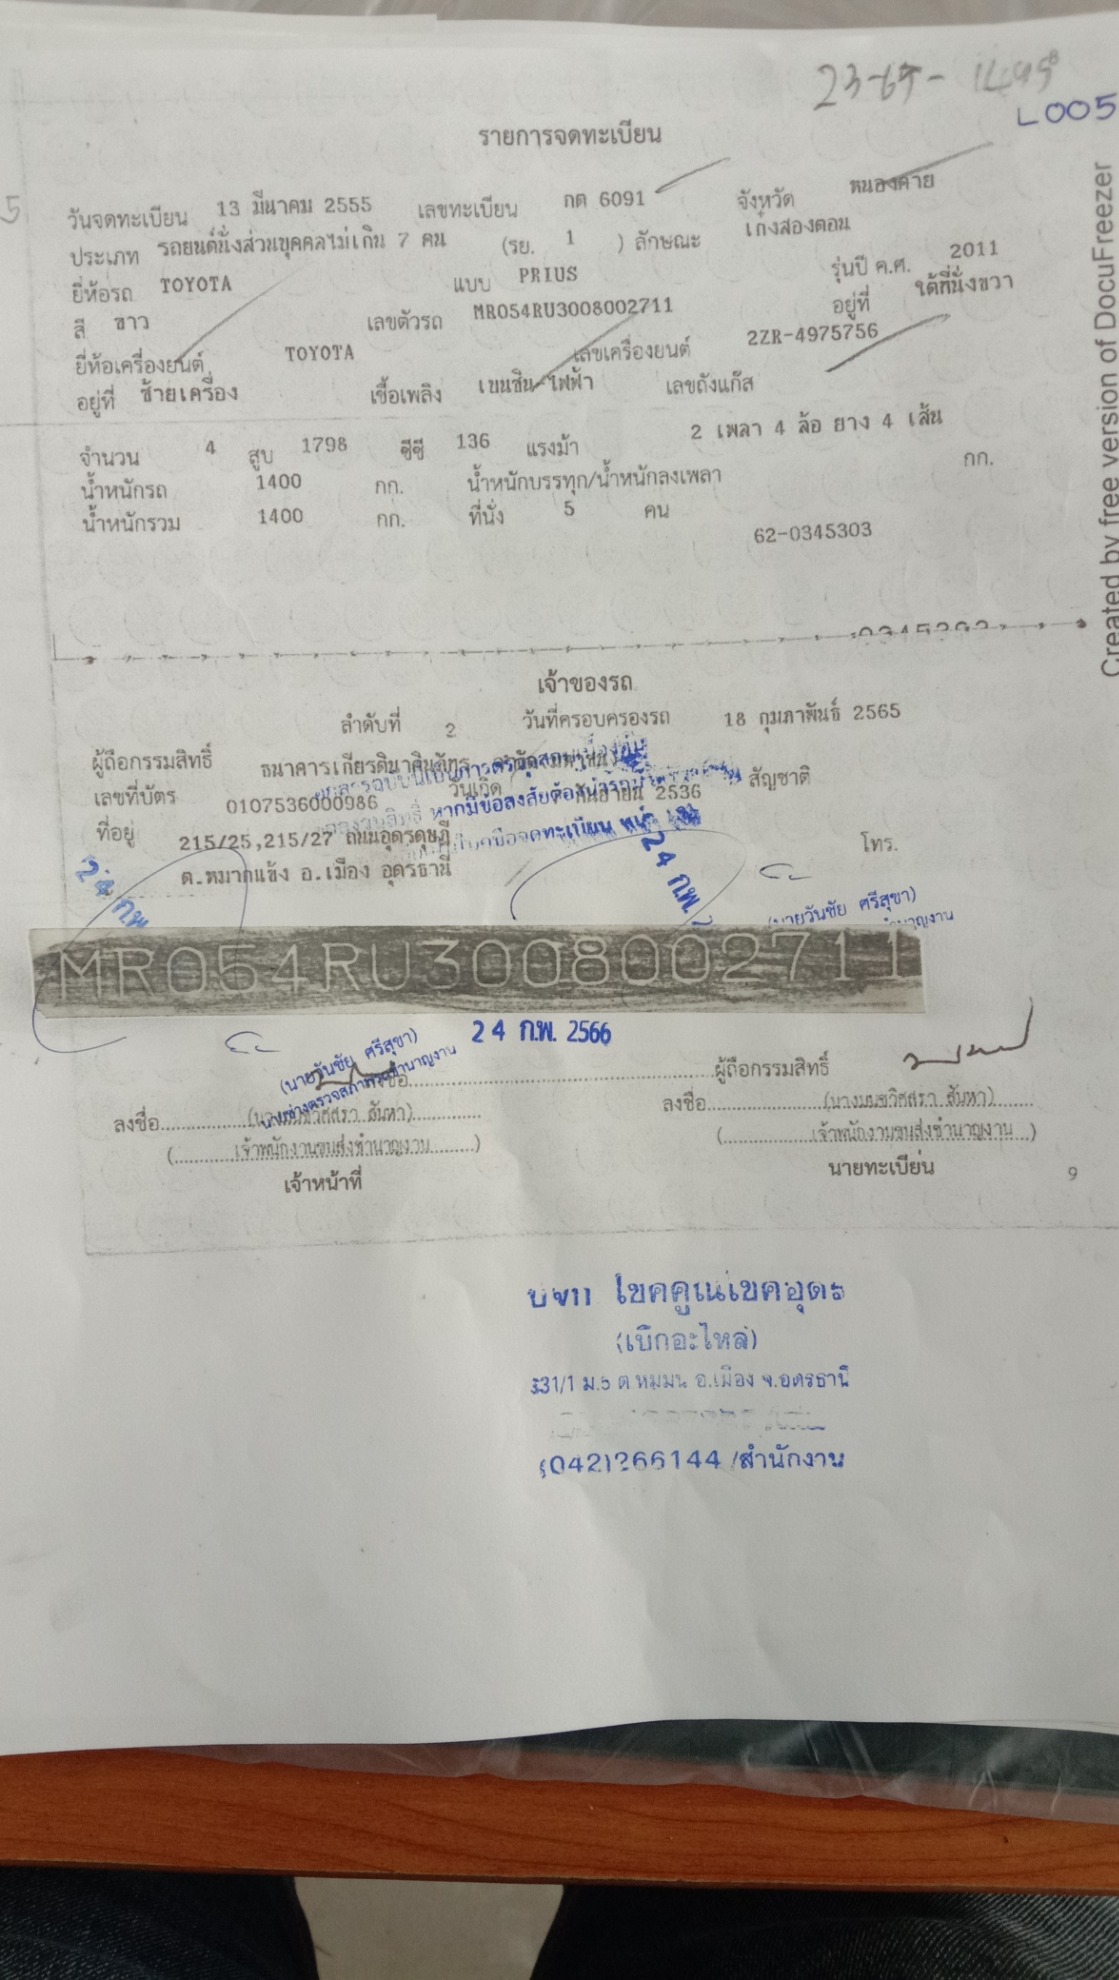 L005
รายการจดทะเบียน
วันจดทะเบียน 13 มีนาคม 2555 เลขทะเบียน กต 6091 จังหวัด หนองคาย
ประเภท รถยนต์นั่งส่วนบุคคลไม่เกิน 7 คน (รย. 1 ) ลักษณะ เก๋งสองตอน
ยี่ห้อรถ TOYOTA แบบ PRIUS รุ่นปี ค.ศ. 2011
สี ขาว เลขตัวรถ MR054RU3008002711 อยู่ที่ ใต้ที่นั่งขวา
ยี่ห้อเครื่องยนต์ TOYOTA เลขเครื่องยนต์ 2ZR-4975756
อยู่ที่ ซ้ายเครื่อง เชื้อเพลิง เบนซิน-ไฟฟ้า เลขถังแก๊ส
จำนวน 4 สูบ 1798 ซีซี 136 แรงม้า 2 เพลา 4 ล้อ ยาง 4 เส้น
น้ำหนักรถ 1400 กก. น้ำหนักบรรทุก/น้ำหนักลงเพลา กก.
น้ำหนักรวม 1400 กก. ที่นั่ง 5 คน
62-0345303
เจ้าของรถ
ลำดับที่ 2 วันที่ครอบครองรถ 18 กุมภาพันธ์ 2565
ผู้ถือกรรมสิทธิ์ ธนาคารเกียรตินาคินภัทร
เลขที่บัตร 0107536000986 วันเกิด กันยายน 2536 สัญชาติ
หากมีข้อสงสัย
ที่อยู่ 215/25,215/27 ถนนอุดรดุษฎี โทร.
ต.หมากแข้ง อ.เมือง อุดรธานี
24 ก.พ.
24 ก.พ.
(นายวันชัย ศรีสุขา)
MR054RU3008002711
24 ก.พ. 2566
(นายวันชัย ศรีสุขา)
นายช่างตรวจสภาพรถชำนาญงาน
ผู้ถือกรรมสิทธิ์
ลงชื่อ
ลงชื่อ
(เจ้าพนักงานขนส่งชำนาญงาน)
(เจ้าพนักงานขนส่งชำนาญงาน)
เจ้าหน้าที่
นายทะเบียน
9
โชคคูณโชคอุดร
(เบิกอะไหล่)
331/1 ม.5 ต.หมูม่น อ.เมือง จ.อุดรธานี
(042)266144 /สำนักงาน
Created by free version of DocuFreezer